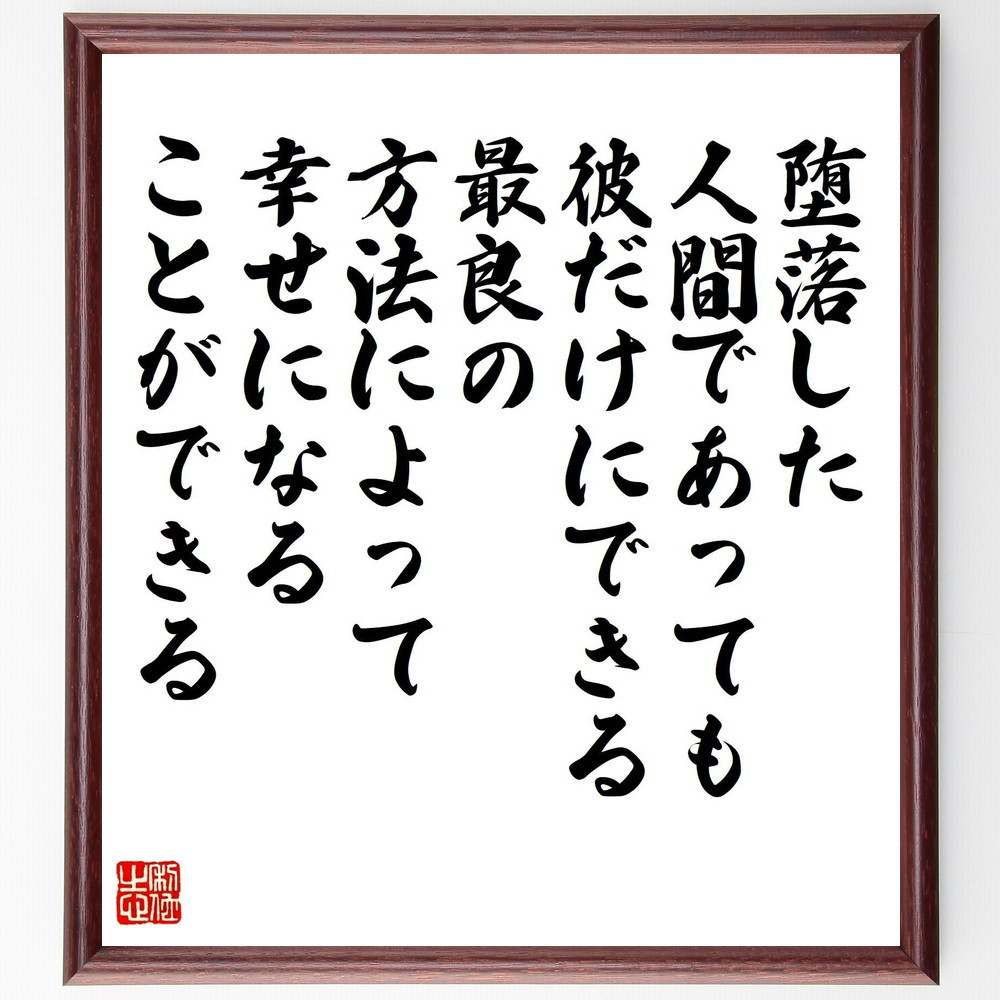 堕落した
人間であっても
彼だけにできる
最良の
方法によって
幸せになる
ことができる